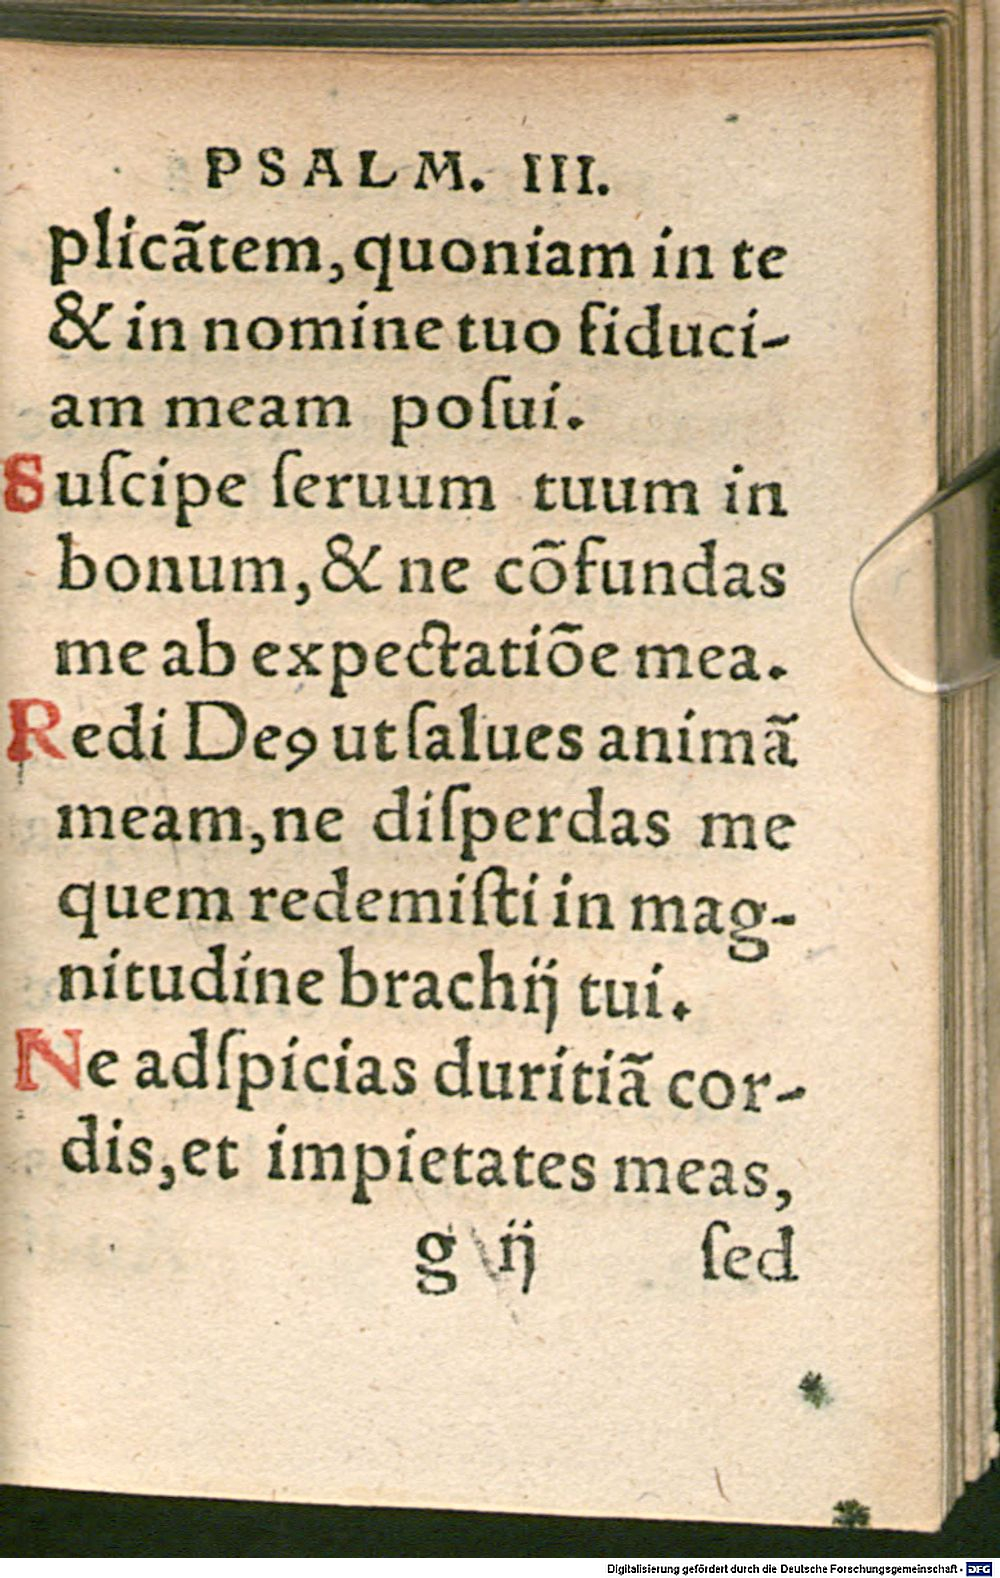 PSALM. III.
plicãtem, quoniam in te
& in nomine tuo fiduci-
am meam poſui.
Suſcipe ſeruum tuum in
bonum, & ne cõfundas
me ab expectatiõe mea.
Redi Deꝯ ut ſalues animã
meam, ne diſperdas me
quem redemiſti in mag-
nitudine brachij tui.
Ne adſpicias duritiã cor-
dis, et impietates meas,
g ij ſed
Digitalisierung gefördert durch die Deutsche Forschungsgemeinschaft - DFG